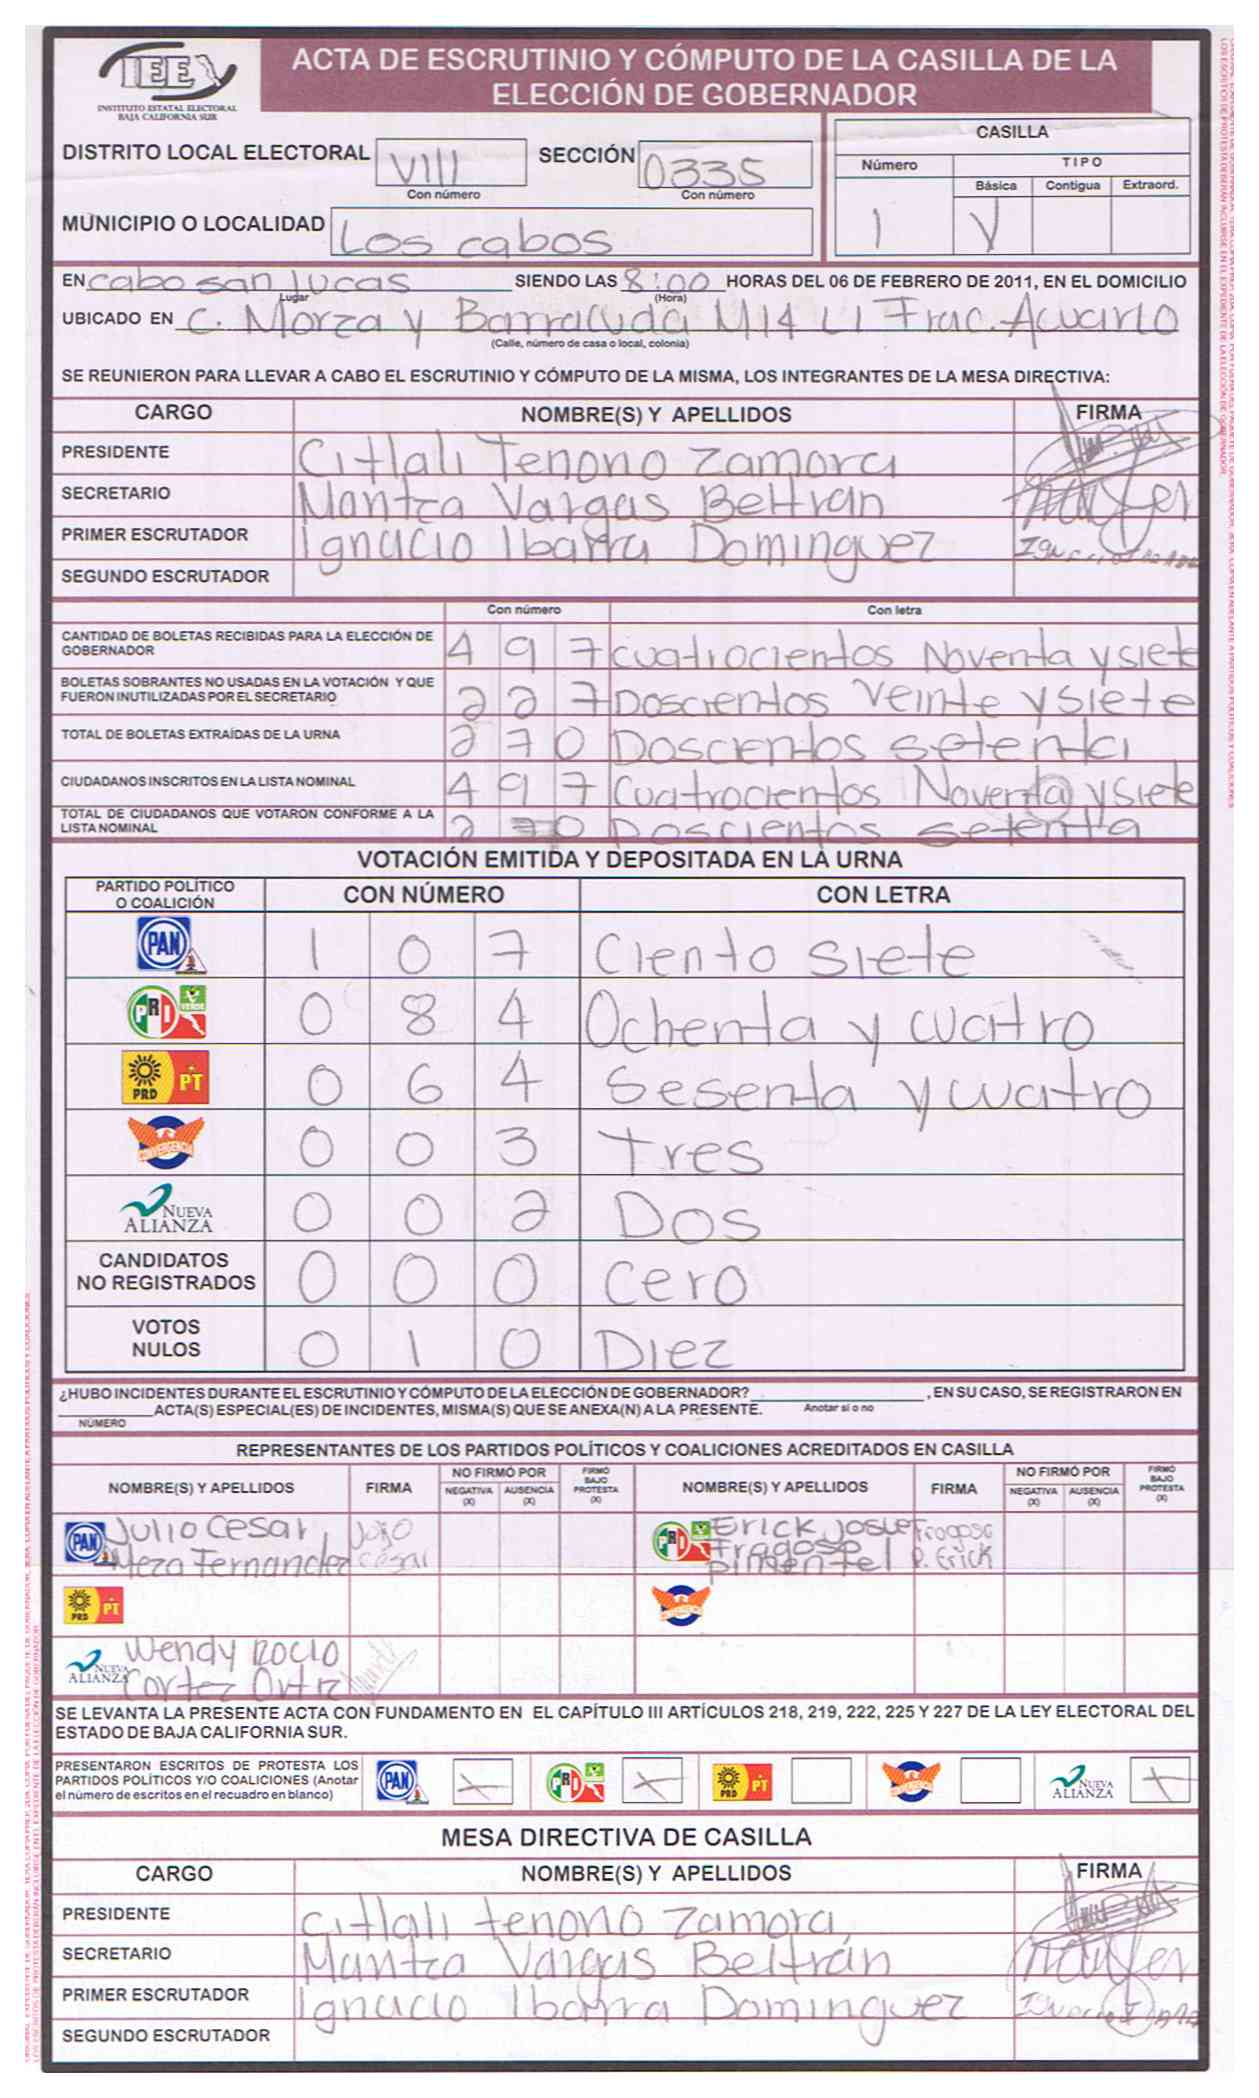 IEE
INSTITUTO ESTATAL ELECTORAL
BAJA CALIFORNIA SUR
ACTA DE ESCRUTINIO Y CÓMPUTO DE LA CASILLA DE LA
ELECCIÓN DE GOBERNADOR
DISTRITO LOCAL ELECTORAL VIII SECCIÓN 0335
Con número Con número
MUNICIPIO O LOCALIDAD Los cabos
CASILLA
Número TIPO
Básica Contigua Extraord.
1
EN cabo san lucas SIENDO LAS 8:00 HORAS DEL 06 DE FEBRERO DE 2011, EN EL DOMICILIO
Lugar (Hora)
UBICADO EN C. Morza y Barracuda M14 L1 Frac. Acuario
(Calle, número de casa o local, colonia)
SE REUNIERON PARA LLEVAR A CABO EL ESCRUTINIO Y CÓMPUTO DE LA MISMA, LOS INTEGRANTES DE LA MESA DIRECTIVA:
CARGO NOMBRE(S) Y APELLIDOS FIRMA
PRESIDENTE Citlali Tenono Zamora
SECRETARIO Vargas Beltrán
PRIMER ESCRUTADOR Ignacio Ibarra Dominguez
SEGUNDO ESCRUTADOR
Con número Con letra
CANTIDAD DE BOLETAS RECIBIDAS PARA LA ELECCIÓN DE
GOBERNADOR 4 9 7 cuatrocientos Noventa y siete
BOLETAS SOBRANTES NO USADAS EN LA VOTACIÓN Y QUE
FUERON INUTILIZADAS POR EL SECRETARIO 2 2 7 Doscientos veinte y siete
TOTAL DE BOLETAS EXTRAÍDAS DE LA URNA 2 7 0 Doscientos setenta
CIUDADANOS INSCRITOS EN LA LISTA NOMINAL 4 9 7 Cuatrocientos Noventa y siete
TOTAL DE CIUDADANOS QUE VOTARON CONFORME A LA
LISTA NOMINAL 2 7 0 Doscientos setenta
VOTACIÓN EMITIDA Y DEPOSITADA EN LA URNA
PARTIDO POLÍTICO
O COALICIÓN CON NÚMERO CON LETRA
PAN 1 0 7 Ciento siete
PRI VERDE 0 8 4 Ochenta y cuatro
PRD PT 0 6 4 Sesenta y cuatro
CONVERGENCIA 0 0 3 tres
NUEVA ALIANZA 0 0 2 Dos
CANDIDATOS
NO REGISTRADOS 0 0 0 cero
VOTOS
NULOS 0 1 0 Diez
¿HUBO INCIDENTES DURANTE EL ESCRUTINIO Y CÓMPUTO DE LA ELECCIÓN DE GOBERNADOR? , EN SU CASO, SE REGISTRARON EN
ACTA(S) ESPECIAL(ES) DE INCIDENTES, MISMA(S) QUE SE ANEXA(N) A LA PRESENTE. Anotar si o no
NÚMERO
REPRESENTANTES DE LOS PARTIDOS POLÍTICOS Y COALICIONES ACREDITADOS EN CASILLA
NOMBRE(S) Y APELLIDOS FIRMA NO FIRMÓ POR NEGATIVA (X) AUSENCIA (X) FIRMÓ BAJO PROTESTA (X) NOMBRE(S) Y APELLIDOS FIRMA NO FIRMÓ POR NEGATIVA (X) AUSENCIA (X) FIRMÓ BAJO PROTESTA (X)
PAN Julio Cesar
Meza Fernandez cesar
PRI Erick Josue Fragoso
Fragoso
pimentel P. Erick
PRD PT
NUEVA ALIANZA Wendy Rocio
Cortez Ortiz
SE LEVANTA LA PRESENTE ACTA CON FUNDAMENTO EN EL CAPÍTULO III ARTÍCULOS 218, 219, 222, 225 Y 227 DE LA LEY ELECTORAL DEL
ESTADO DE BAJA CALIFORNIA SUR.
PRESENTARON ESCRITOS DE PROTESTA LOS
PARTIDOS POLÍTICOS Y/O COALICIONES (Anotar
el número de escritos en el recuadro en blanco)
PAN PRI PRD PT NUEVA ALIANZA
MESA DIRECTIVA DE CASILLA
CARGO NOMBRE(S) Y APELLIDOS FIRMA
PRESIDENTE Citlali tenono Zamora
SECRETARIO Vargas Beltrán
PRIMER ESCRUTADOR Ignacio Ibarra Dominguez
SEGUNDO ESCRUTADOR